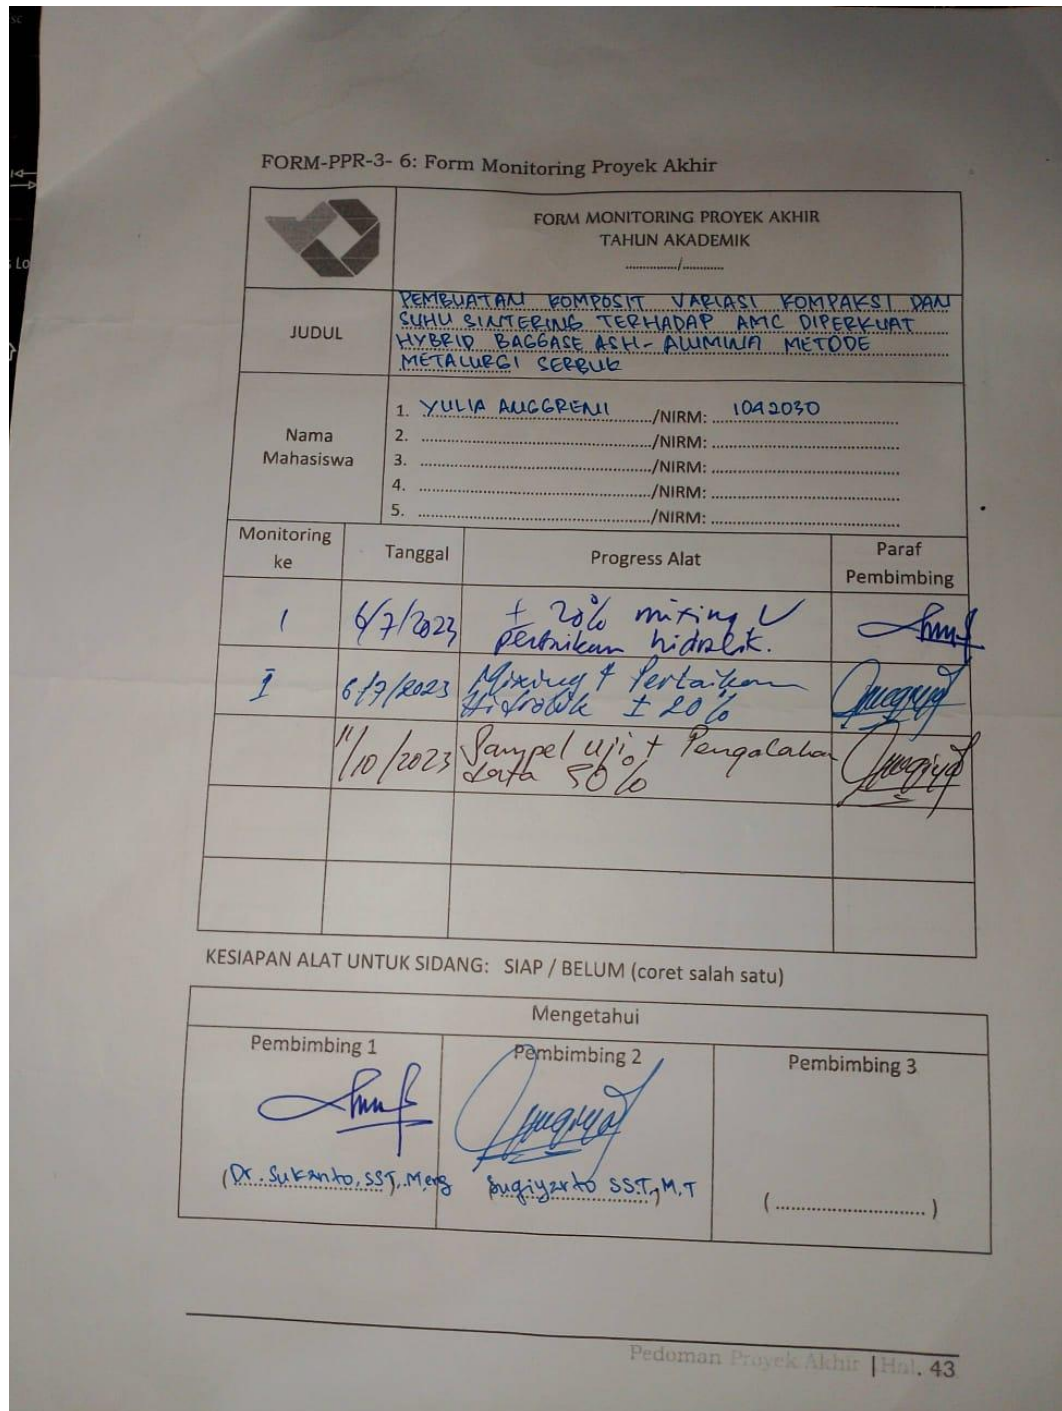 FORM-PPR-3- 6: Form Monitoring Proyek Akhir
FORM MONITORING PROYEK AKHIR
TAHUN AKADEMIK
............../............
JUDUL
PEMBUATAN KOMPOSIT VARIASI KOMPAKSI DAN
SUHU SINTERING TERHADAP AMC DIPERKUAT
HYBRID BAGGASE ASH- ALUMINA METODE
METALURGI SERBUK
Nama
Mahasiswa
1. YULIA ANGGRENI /NIRM: 1042030
2. ............/NIRM: ............
3. ............/NIRM: ............
4. ............/NIRM: ............
5. ............/NIRM: ............
Monitoring
ke
Tanggal
Progress Alat
Paraf
Pembimbing
1 6/7/2023 ± 20% mixing
hidrolik.
I 6/7/2023 Mixing + Pertaikan
Hidrolik ± 20%
11/10/2023 Sampel uji + Pengolahan
data 50%
KESIAPAN ALAT UNTUK SIDANG: SIAP / BELUM (coret salah satu)
Mengetahui
Pembimbing 1 Pembimbing 2 Pembimbing 3
(Dr. Sukanto, SST., M.eng Sugiyarto SS.T., M.T (............)
Pedoman Proyek Akhir | Hal. 43